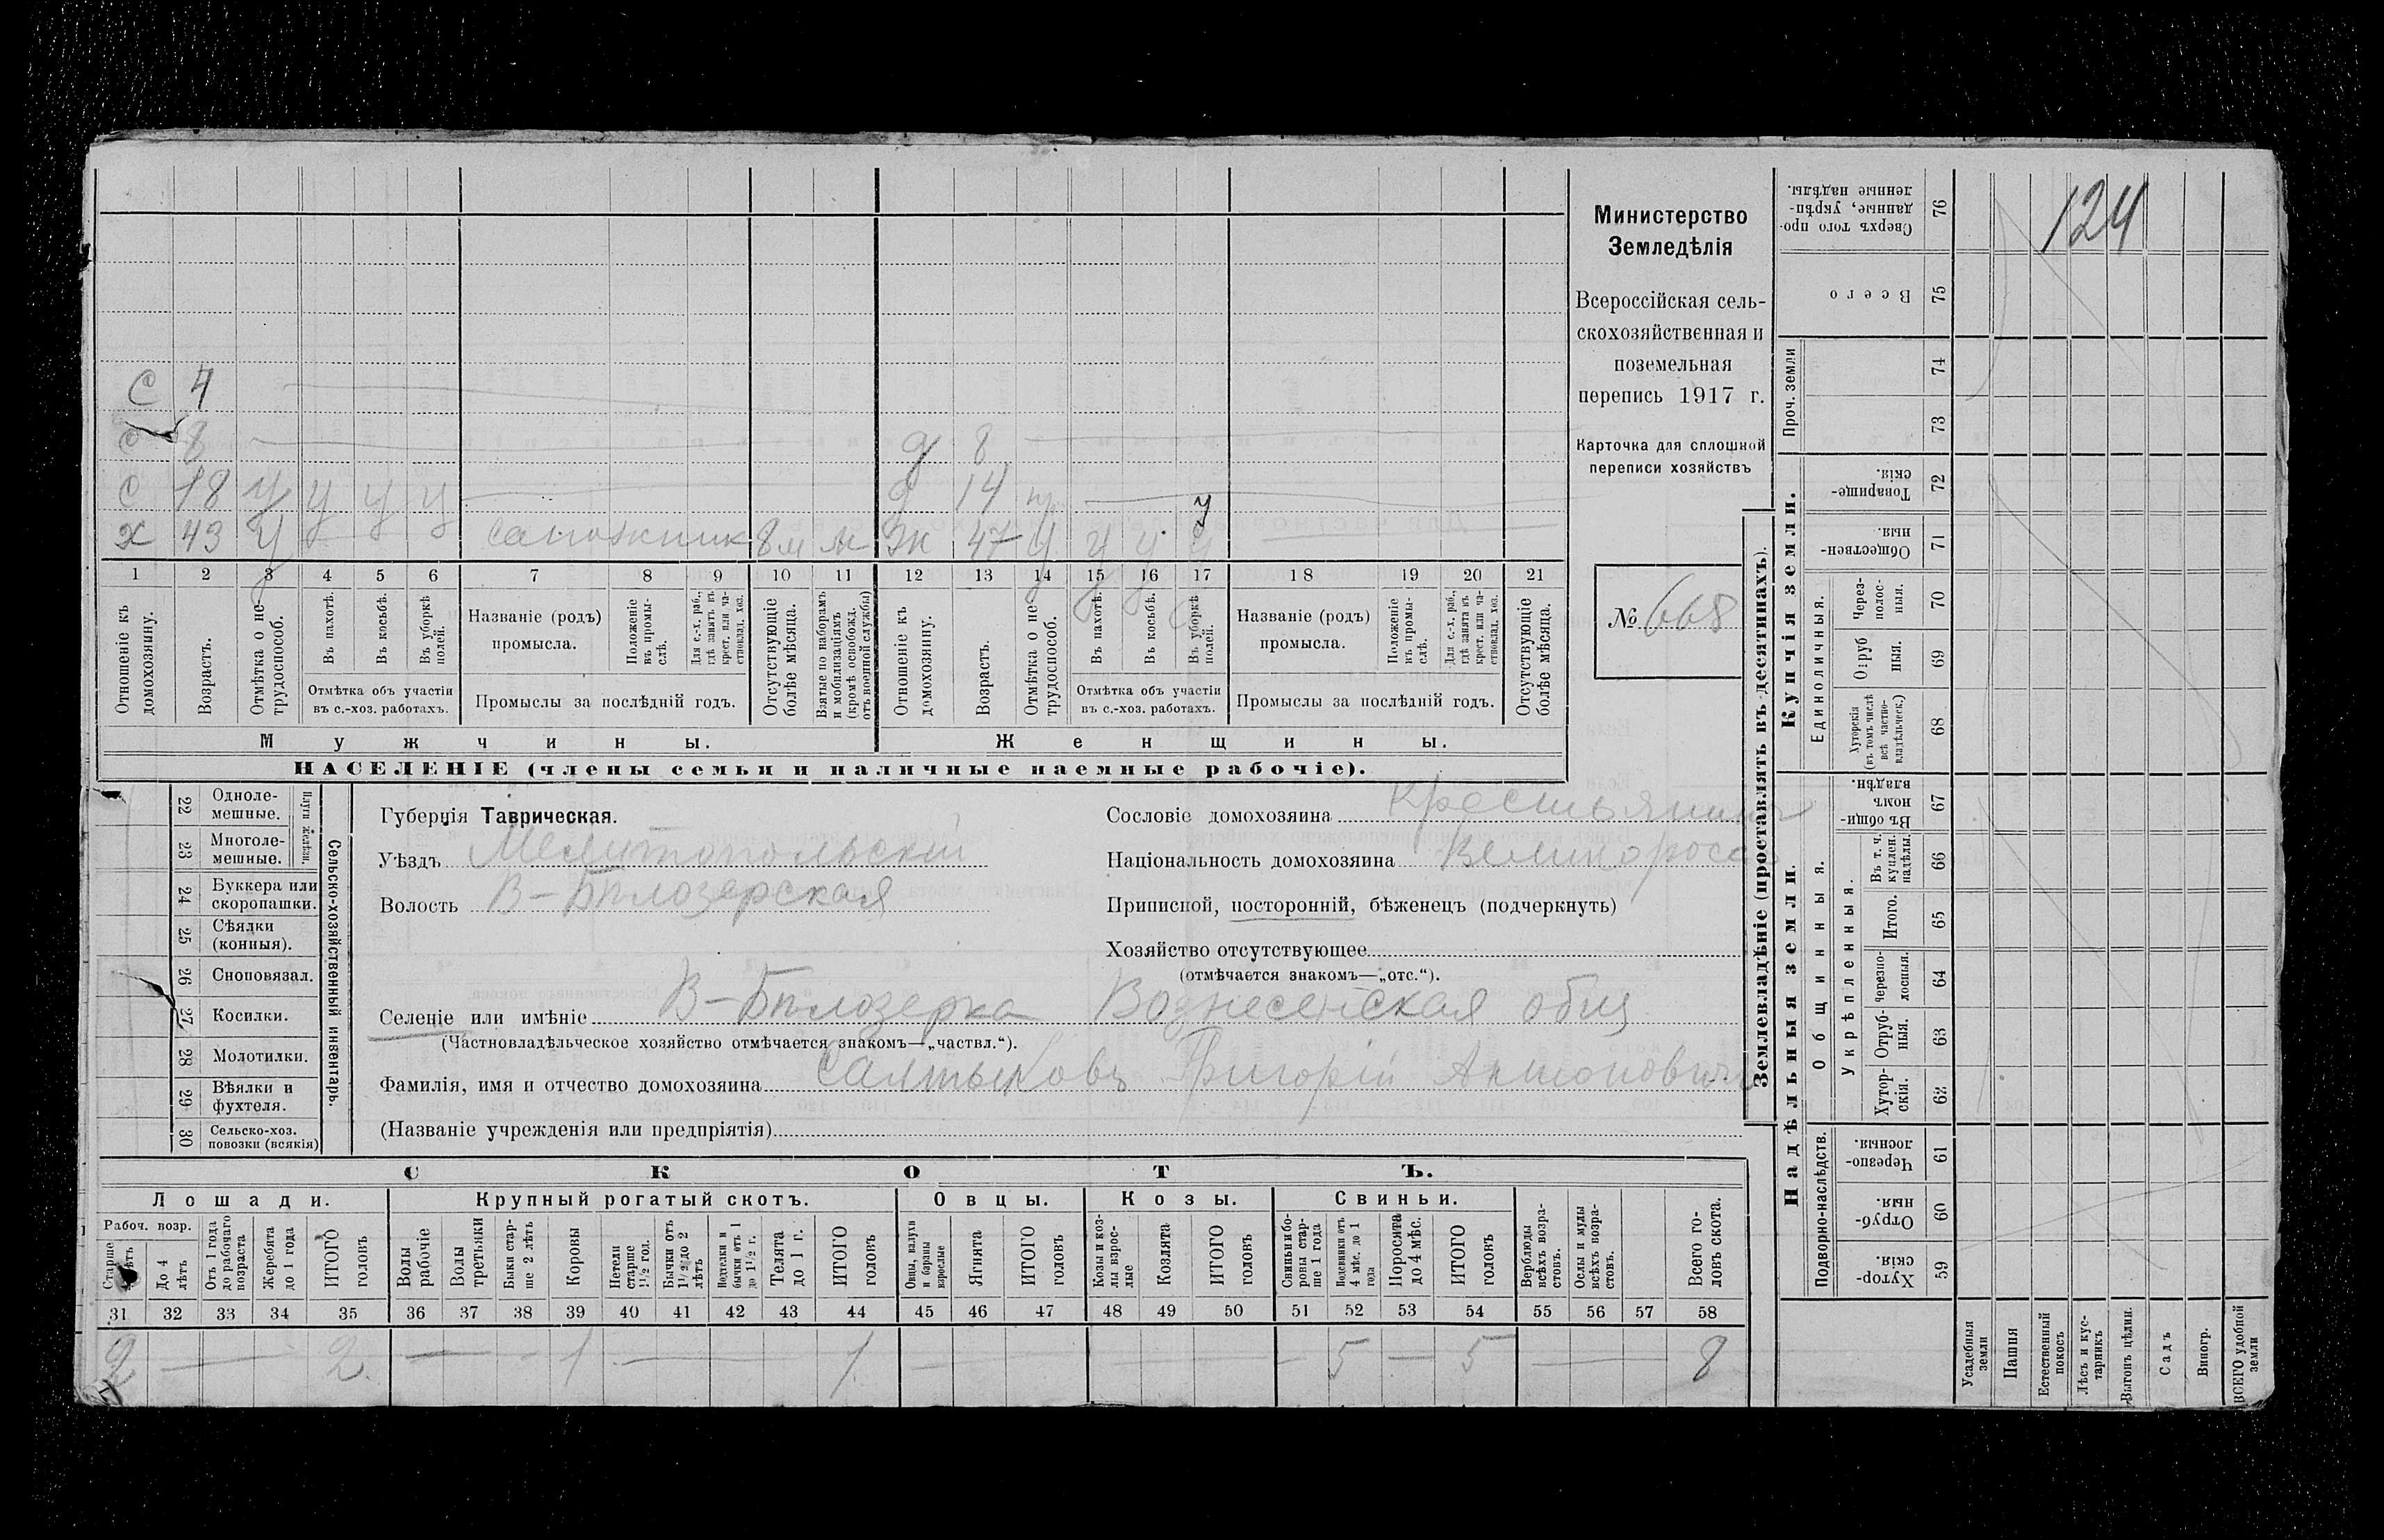 Министерство
Земледѣлія
Всероссійская сель-
скохозяйственная и
поземельная
перепись 1917 г.
Карточка для сплошной
переписи хозяйствъ
№ 668
С 4
С 8 д 8
С 18 у у у у д 14
Х 43 У сапожник 8 м м Ж 47 У у у у
1 2 3 4 5 6 7 8 9 10 11 12 13 14 15 16 17 18 19 20 21
Отношеніе къ домохозяину.
Возрастъ.
Отмѣтка о не-трудоспособ.
Въ пахотѣ.
Въ косьбѣ.
Въ уборкѣ полей.
Отмѣтка объ участіи
въ с.-хоз. работахъ.
Названіе (родъ)
промысла.
Положеніе въ промы-слѣ.
Для с.-х. раб., гдѣ занятъ въ крест. или ча-стновлад. хоз.
Промыслы за послѣдній годъ.
Отсутствующіе болѣе мѣсяца.
Взятые по наборамъ и мобилизаціямъ (кромѣ освобожд. отъ военной службы)
Отношеніе къ домохозяину.
Возрастъ.
Отмѣтка о не-трудоспособ.
Въ пахотѣ.
Въ косьбѣ.
Въ уборкѣ полей.
Отмѣтка объ участіи
въ с.-хоз. работахъ.
Названіе (родъ)
промысла.
Положеніе въ промы-слѣ.
Для с.-х. раб., гдѣ занята въ крест. или ча-стновлад. хоз.
Промыслы за послѣдній годъ.
Отсутствующіе болѣе мѣсяца.
Мужчины. Женщины.
НАСЕЛЕНІЕ (члены семьи и наличные наемные рабочіе).
22 Одноле-мешные.
23 Многоле-мешные.
Плуги желѣзн.
24 Буккера или скоропашки.
25 Сѣялки (конныя).
26 Сноповязал.
27 Косилки.
28 Молотилки.
29 Вѣялки и фухтеля.
30 Сельско-хоз. повозки (всякія)
Сельско-хозяйственный инвентарь.
Губернія Таврическая.
Уѣздъ Мелитопольскій
Волость В-Бѣлозерская
Сословіе домохозяина Крестьянинъ
Національность домохозяина Великороссъ
Приписной, посторонній, бѣженецъ (подчеркнуть)
Хозяйство отсутствующее
(отмѣчается знакомъ—„отс.“).
Селеніе или имѣніе В-Бѣлозерка Вознесенская общ
(Частновладѣльческое хозяйство отмѣчается знакомъ—„частвл.“).
Фамилія, имя и отчество домохозяина Салтыковъ Григорій Антонович
(Названіе учрежденія или предпріятія)
СКОТЪ.
Лошади. Крупный рогатый скотъ. Овцы. Козы. Свиньи.
Рабоч. возр.
Старше 4 лѣтъ
До 4 лѣтъ
Отъ 1 года до рабочаго возраста
Жеребята до 1 года
ИТОГО головъ
Волы рабочіе
Волы третьяки
Быки стар-ше 2 лѣтъ
Коровы
Нетели старше 1½ год.
Бычки отъ 1½ до 2 лѣтъ
Подтелки и бычки отъ 1 до 1½ г.
Телята до 1 г.
ИТОГО головъ
Овцы, валухи и бараны взрослые
Ягнята
ИТОГО головъ
Козы и коз-лы взрос-лые
Козлята
ИТОГО головъ
Свиньи и бо-ровы стар-ше 1 года
Подсвинки отъ 4 мѣс. до 1 года
Поросята до 4 мѣс.
ИТОГО головъ
Верблюды всѣхъ возра-стовъ.
Ослы и мулы всѣхъ возра-стовъ.
Всего го-ловъ скота.
31 32 33 34 35 36 37 38 39 40 41 42 43 44 45 46 47 48 49 50 51 52 53 54 55 56 57 58
2 — 2 — 1 — 1 — 5 — 5 — 8
Землевладѣніе (проставлять въ десятинахъ).
Купчія земли.
Надѣльныя земли.
124
Сверхъ того про-данные, укрѣп-ленные надѣлы. 76
Всего 75
Проч. земли 74
73
Товарище-скія. 72
Обществен-ныя. 71
Единоличныя.
Через-полос-ныя. 70
Отруб ныя. 69
Хуторскія (въ томъ числѣ всѣ частно-владѣльческ.) 68
Общинныя.
Въ общи-номъ владѣн. 67
Укрѣпленныя.
Въ т. ч. куплен. надѣлы. 66
Итого. 65
Черезпо-лосныя. 64
Отруб-ныя. 63
Хутор-скія. 62
Подворно-наслѣдств.
Черезпо-лосныя. 61
Отруб-ныя. 60
Хутор-скія. 59
Усадебныя земли
Пашня
Естественный покосъ
Лѣсъ и кус-тарникъ
Выгонъ цѣлин.
Садъ
Виногр.
ВСЕГО удобной земли